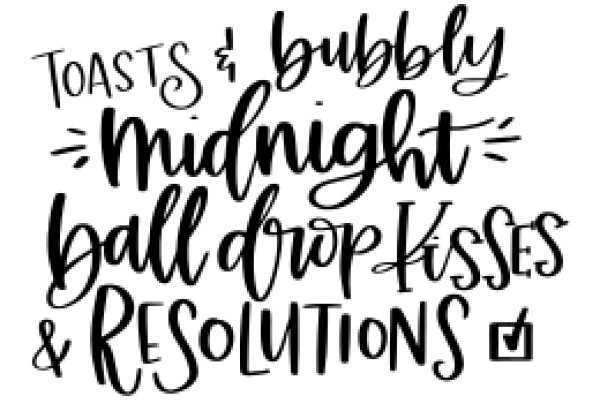 TOASTS & bubbly
midnight
ball drop KISSES
& RESOLUTIONS